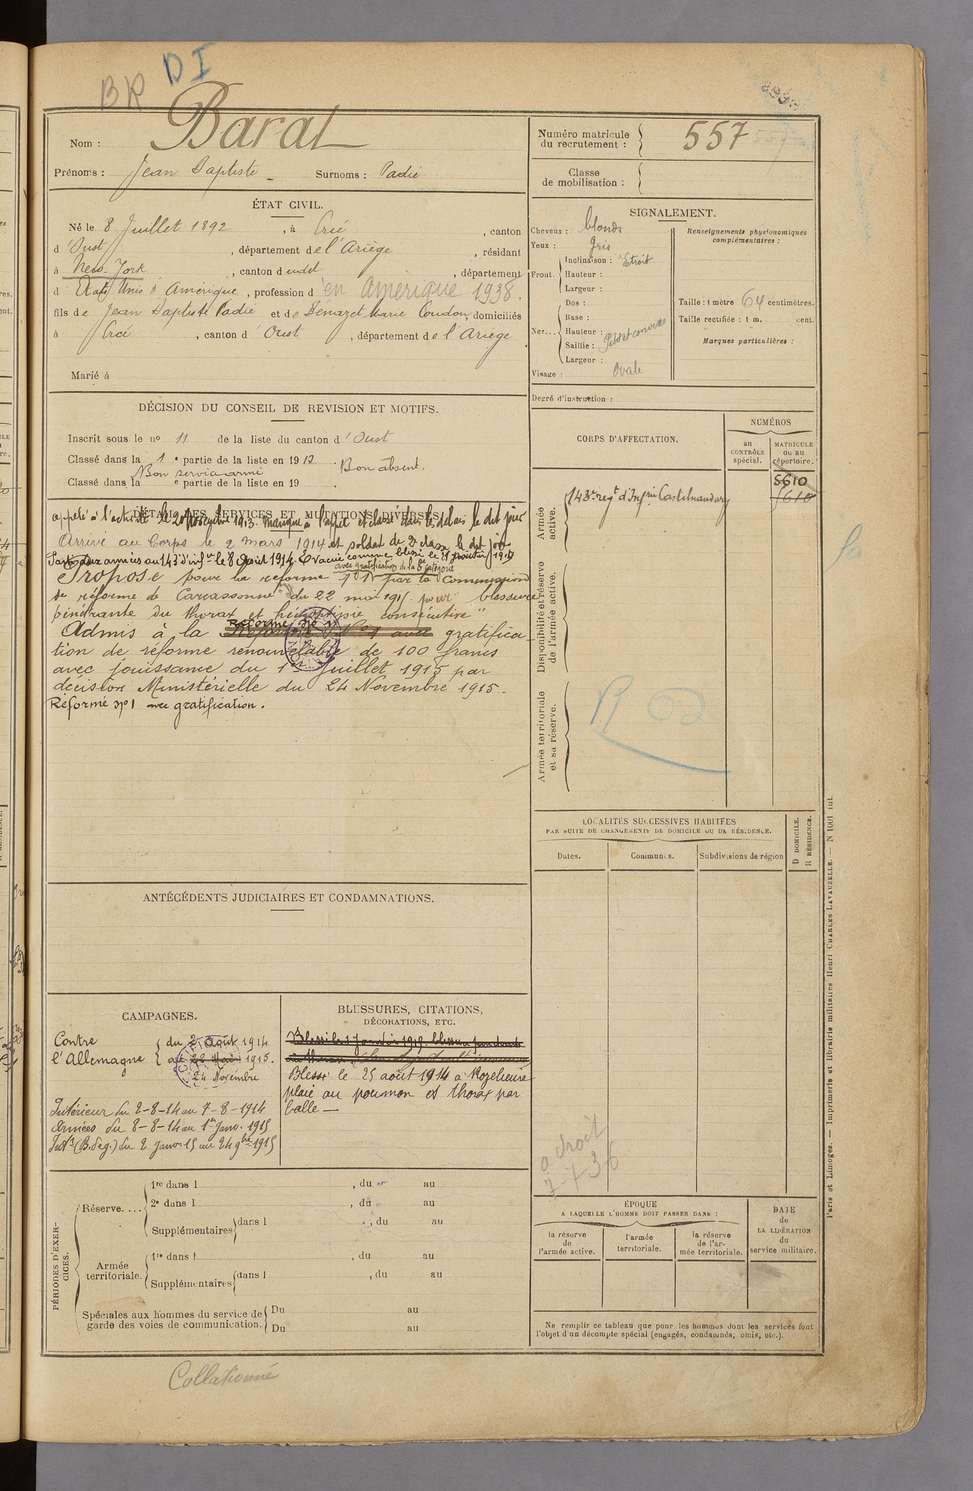 BR DI
Nom : Barat
Prénoms : Jean Baptiste Surnoms : Padié
ÉTAT CIVIL.
Né le 8 Juillet 1892, à Ercé, canton
d'Oust, département de l'Ariège, résidant
à New-York, canton dudit, département
d États Unis d'Amérique, profession d en Amérique 1938.
fils de Jean Baptiste Padié et de Denazet Marie Coudon, domiciliés
à Ercé, canton d'Oust, département de l'Ariège
Marié à
DÉCISION DU CONSEIL DE REVISION ET MOTIFS.
Inscrit sous le no 11 de la liste du canton d'Oust
Classé dans la 1e partie de la liste en 1912 Bon absent.
Bon service armé
Classé dans la e partie de la liste en 19
DÉTAIL DES SERVICES ET MUTATIONS DIVERSES.
appelé à l'activité le 20 Novembre 1913. manque à l'appel et classé dans le dit jour
Arrivé au Corps le 2 mars 1914 et soldat de 2e classe le dit jour
Parti aux armées au 143e d'infrie le 8 Août 1914. Évacué comme blessé le
avec gratification de la 8e catégorie
Proposé pour la réforme no 1 par la Commission
de réforme de Carcassonne du 22 mai 1915 pour "blessure
pénétrante du thorax et hémoptysie consécutive"
Réforme No 1
Admis à la Réforme No 1 avec gratifica-
tion de réforme renouvelable de 100 francs
avec jouissance du 1er Juillet 1915 par
décision Ministérielle du 24 Novembre 1915.
Réformé No 1 avec gratification.
ANTÉCÉDENTS JUDICIAIRES ET CONDAMNATIONS.
CAMPAGNES.
Contre l'Allemagne
du 2 Août 1914
au 22 Mai 1915.
24 Novembre
Intérieur du 2-8-14 au 7-8-1914
Armées du 8-8-14 au 1er Janv. 1915
Intr (B. de g.) du 2 Janv. 15 au 24 9bre 1915
BLESSURES, CITATIONS,
DÉCORATIONS, ETC.
Blessé le 25 août 1914 à Rozelieure
plaie au poumon et thorax par
balle
a droit
7-7-36
PÉRIODES D'EXERCICES.
Réserve....
1re dans l , du au
2e dans l , du au
Supplémentaires dans l , du au
Armée territoriale.
1re dans l , du au
Supplémentaires dans l , du au
Spéciales aux hommes du service de
garde des voies de communication.
Du au
Du au
Collationné
Numéro matricule
du recrutement : 557
Classe
de mobilisation :
SIGNALEMENT.
Cheveux : blonds
Yeux : gris
Front.
Inclinaison : Étroit
Hauteur :
Largeur :
Nez...
Dos :
Base :
Hauteur :
Saillie : Petit et convexe
Largeur :
Visage : Ovale
Renseignements physionomiques
complémentaires :
Taille : 1 mètre 64 centimètres.
Taille rectifiée : 1 m. cent.
Marques particulières :
Degré d'instruction :
CORPS D'AFFECTATION.
NUMÉROS
au
CONTRÔLE
spécial.
MATRICULE
ou au
répertoire.
5610
5610
Armée
active.
143e regt d'Infrie Castelnaudary
Disponibilité et réserve
de l'armée active.
Armée territoriale
et sa réserve.
LOCALITÉS SUCCESSIVES HABITÉES
PAR SUITE DE CHANGEMENTS DE DOMICILE OU DE RÉSIDENCE.
Dates.
Communes.
Subdivisions de région
D DOMICILE.
R RÉSIDENCE.
ÉPOQUE
A LAQUELLE L'HOMME DOIT PASSER DANS :
la réserve
de
l'armée active.
l'armée
territoriale.
la réserve
de l'ar-
mée territoriale.
DATE
de
LA LIBÉRATION
du
service militaire.
Ne remplir ce tableau que pour les hommes dont les services font
l'objet d'un décompte spécial (engagés, condamnés, omis, etc.).
Paris et Limoges. — Imprimerie et librairie militaires Henri CHARLES-LAVAUZELLE. — N 1001 ini.